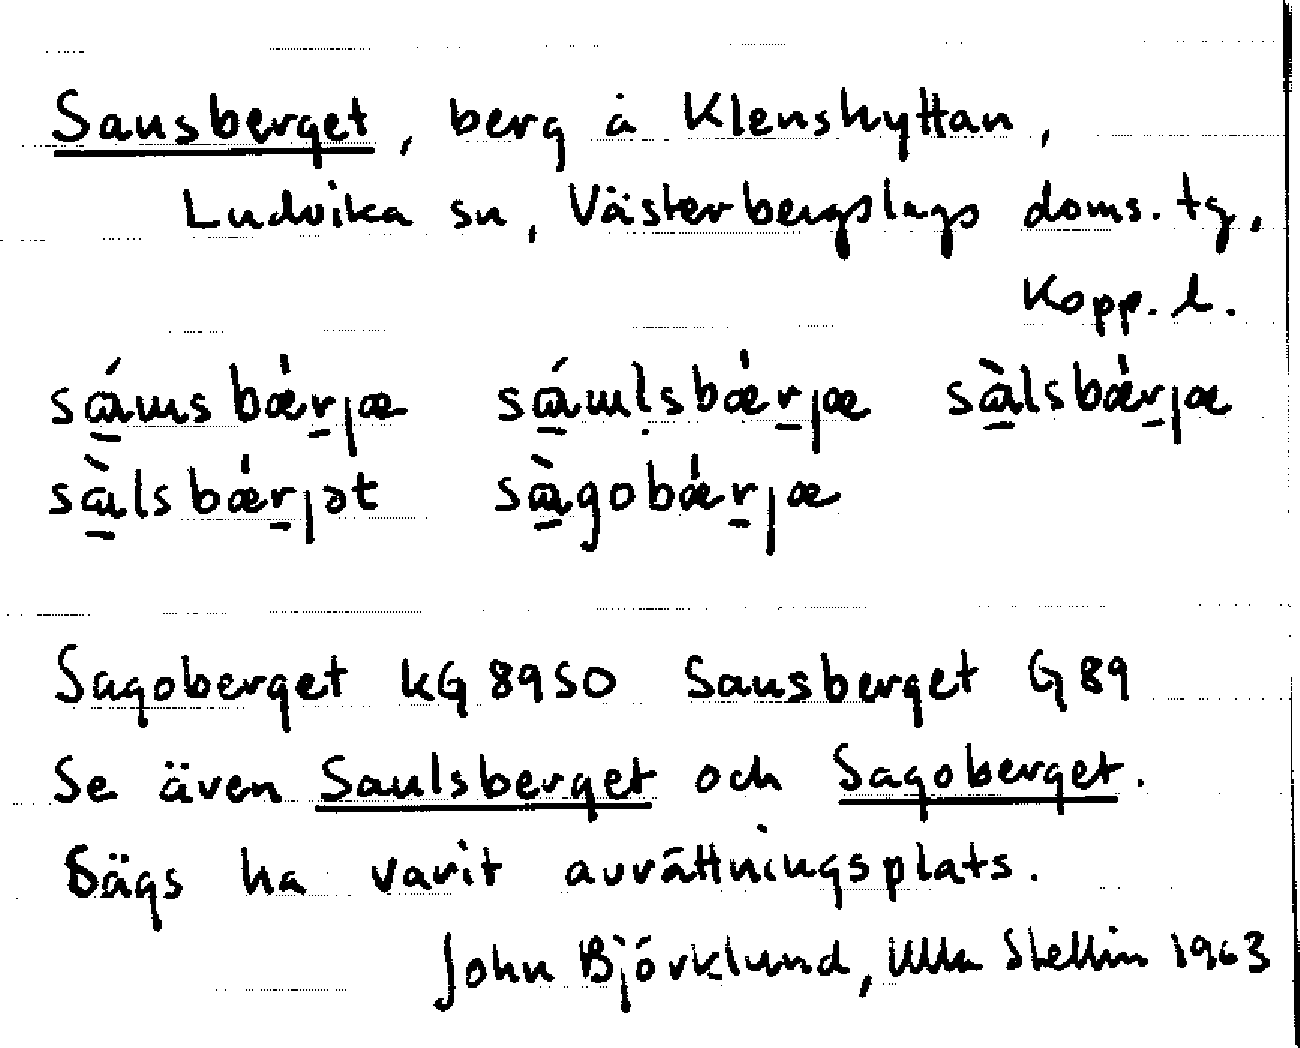 Sausberget, berg å Klenshyttan,
Ludvika sn, Västerbergslags doms. tg,
Kopp. l.
Sagoberget kG 89SO Sausberget G 89
Se även Saulsberget och Sagoberget.
Sägs ha varit avrättningsplats.
John Björklund, Ulla Stellin 1963